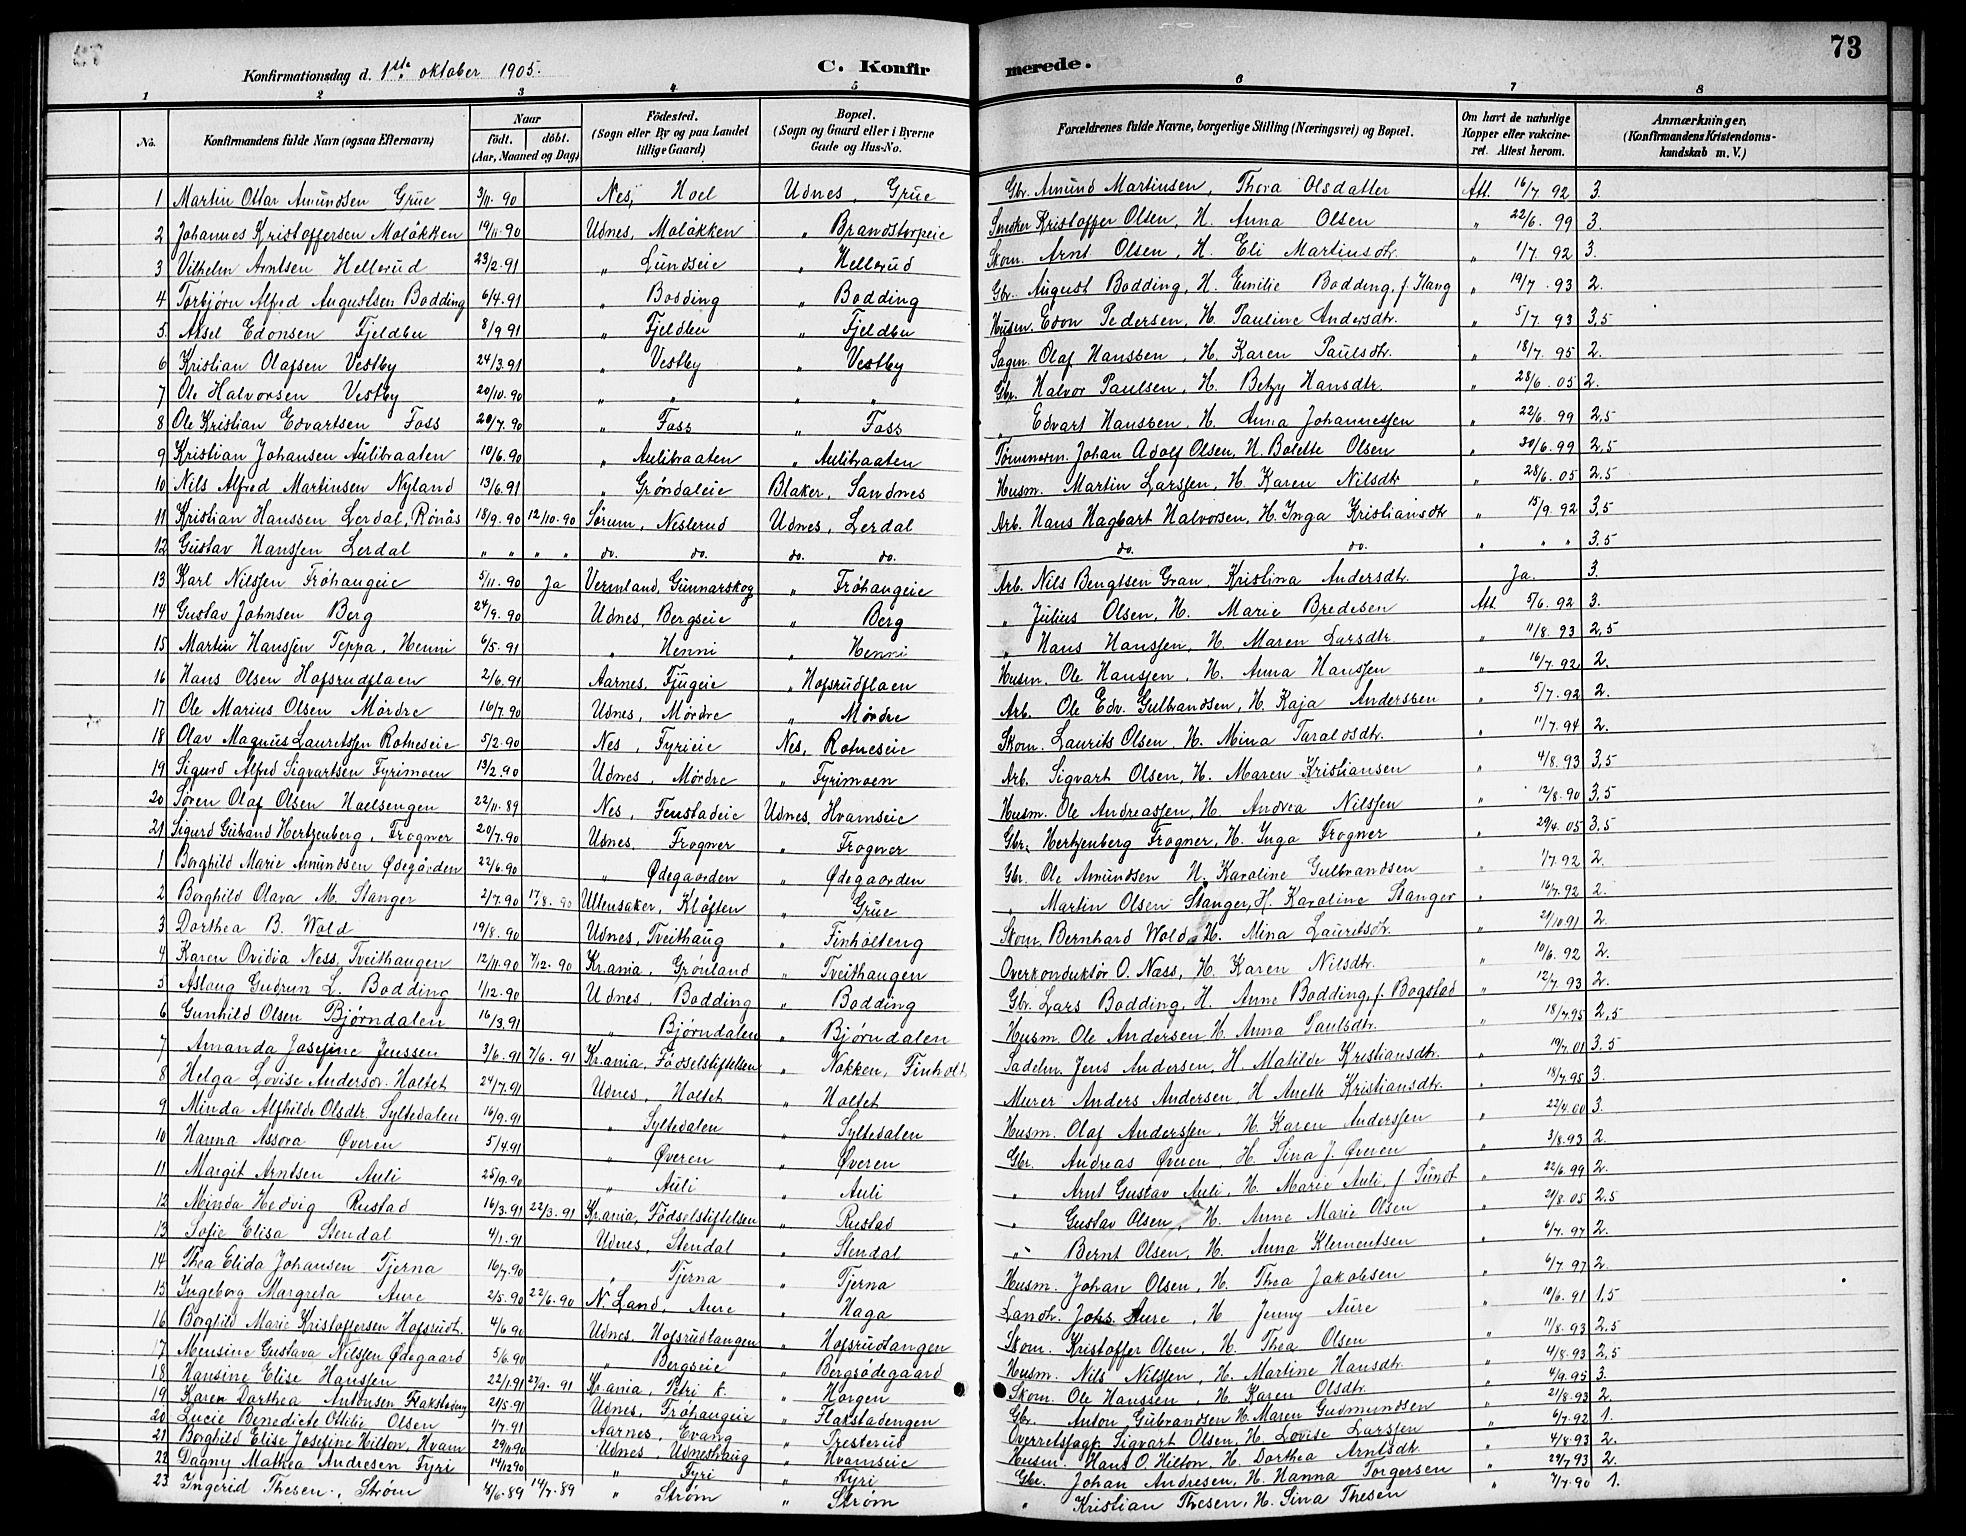 Konfirmationsdag d. 1ste oktober 1905. C. Konfirmerede. 73
1 2 3 4 5 6 7 8
No. Konfirmandens fulde Navn (ogsaa Efternavn) Naar födt. döbt. (Aar, Maaned og Dag) Födested. (Sogn eller By og paa Landet tillige Gaard) Bopæl. (Sogn og Gaard eller i Byerne Gade og Hus-No. Forældrenes fulde Navne, borgerlige Stilling (Næringsvei) og Bopæl. Om havt de naturlige Kopper eller vaccineret. Attest herom. Anmærkninger, (Konfirmandens Kristendomskundskab m. V.)
1 Martin Ottar Amundsen Grue 3/11. 90 Nes, Hoel Udnes, Grue Gbr. Amund Martinsen, Thora Olsdatter Att. 16/7 92 3.
2 Johannes Kristoffersen Moløkken 19/11. 90 Udnes, Moløkken " Brandstorpeie Snedker Kristoffer Olsen, H. Anna Olsen " 22/6. 99 3.
3 Vilhelm Arntsen Hellerud 23/2. 91 " Lundseie " Hellerud Skom. Arnt Olsen, H. Eli Martinsdtr. " 1/7. 92 3.
4 Torbjörn Alfred Augustsen Bodding 6/4. 91 " Bodding " Bodding Gbr. August Bodding, H. Emilie Bodding, f. Stang " 19/7. 93 2.
5. Aksel Edonsen Fjeldbu 8/9 91 " Fjeldbu " Fjeldbu Husm. Edon Pedersen, H. Pauline Andersdtr. " 5/7. 93 3,5
6 Kristian Olafsen Vestby 24/3. 91 " Vestby " Vestby Sagm. Olaf Hanssen, H. Karen Paulsdtr. " 18/7. 95 2.
7 Ole Halvorsen Vestby 20/10. 90 " " " " Gbr. Halvor Paulsen, H. Betzy Hansdtr. " 28/6. 05 2.
8 Ole Kristian Edvartsen Foss 20/7. 90 " Foss " Foss " Edvart Hanssen, H. Anna Johannessen " 22/6. 99 2,5
9 Kristian Johansen Aulibraaten 10/6. 90 " Aulibraaten " Aulibraaten Tömmerm. Johan Adolf Olsen, H. Bolette Olsen " 30/6. 99 2,5
10 Nils Alfred Martinsen Nyland 13/6. 91 " Gröndaleie Blaker, Sandnes Husm. Martin Larssen, H. Karen Nilsdtr " 28/6. 05 2,5
11 Kristian Hanssen Lerdal, Rönås 18/9. 90 12/10. 90 Sörum, Nesterud Udnes, Lerdal Arb. Hans Hagbart Halvorsen, H. Inga Kristiansdtr " 15/9 92 3,5
12 Gustav Hanssen Lerdal " " " " do. do. do. do. do. do. " " " 3,5
13 Karl Nilssen Fröhaugeie 5/11. 90 Ja Vermland, Gunnarskog " Fröhaugeie Arb. Nils Bengtsen Gran, Kristina Andersdtr. Ja. 3.
14 Gustav Johnsen Berg 24/9. 90 Udnes, Bergseie " Berg " Julius Olsen, H. Marie Bredesen Att. 5/6. 92 3.
15 Martin Hanssen Teppa, Henni 6/5. 91 " Henni " Henni " Hans Hanssen, H. Maren Larsdtr " 11/8. 93 2,5
16 Hans Olsen Hofsrudflaen 2/6. 91 Aarnes, Fjugeie " Hofsrudflaen Husm. Ole Hanssen, H. Anna Hanssen " 16/7. 92 2.
17 Ole Marius Olsen Mördre 16/7. 90 Udnes, Mördre " Mördre Arb. Ole Edv. Gulbrandsen, H. Kaja Anderssen " 5/7. 92 2.
18 Olav Magnus Lauretssen Rotneseie 5/2. 90 Nes, Fyrieie Nes, Rotneseie Skom. Laurits Olsen, H. Mina Taraldsdtr. " 11/7. 94 2.
19 Sigurd Alfred Sigvartsen Fyrimoen 13/2. 90 Udnes, Mördre " Fyrimoen Arb. Sigvart Olsen, H. Maren Kristiansen " 4/8. 93 3,5
20 Sören Olaf Olsen Haelsengen 22/11. 89 Nes, Fenstadeie Udnes, Hvamseie Husm. Ole Andreassen, H. Andrea Nilssen " 12/8. 90 3,5
21 Sigurd Gulbrand Hertzenberg, Frogner 20/7. 90 Udnes, Frogner " Frogner Gbr. Hertzenberg Frogner, H. Inga Frogner " 29/4. 05 3,5
1 Borghild Marie Amundsen Ødegården 22/6. 90 " Ødegaarden " Ødegaarden Gbr. Ole Amundsen H. Karoline Gulbrandsen " 1/7. 92 2.
2 Borghild Olava M. Stanger 2/7. 90 17/8. 90 Ullensaker, Kløften " Grue " Martin Olsen Stanger, H. Karoline Stanger " 16/7. 92 2.
3 Dorthea B. Wold 19/8. 90 Udnes, Tveithaug " Finholteng Skom. Bernhard Wold, H. Mina Lauritsdtr. " 21/10. 91 2.
4 Karen Ovidia Ness, Tveithaugen 12/11. 90 7/12. 90 Krania, Grönland " Tveithaugen Overkonduktör O. Næss, H. Karen Nilsdtr. " 10/6. 92 2.
5 Aslaug Gudrun L. Bodding 1/12. 90 Udnes, Bodding " Bodding Gbr. Lars Bodding, H. Anne Bodding, f. Bogstad " 12/7. 93 2.
6 Gunhild Olsen Björndalen 16/3. 91 " Bjørndalen " Bjørndalen Husm. Ole Andersen, H. Anna Paulsdtr. " 18/7. 95 2,5
7 Amanda Josefine Jenssen 3/6. 91 7/6. 91 Krania, Födselstiftelsen " Nokken, Finholt Sadelm. Jens Andersen, H. Matilde Kristiansdtr. " 19/7. 01 3,5
8 Helga Lovise Andersdr. Holtet 24/7. 91 Udnes, Holtet " Holtet Murer Anders Andersen, H Anette Kristiansdtr. " 18/7. 95 3.
9 Minda Alfhilde Olsdtr. Syltedalen 16/9. 91 " Syltedalen " Syltedalen Husm. Olaf Anderssen, H. Karen Anderssen " 22/4. 00 3.
10 Hanna Assora Øveren 5/4. 91 " Øveren " Øveren Gbr. Andreas Øveren, H. Sina J. Øveren " 3/8. 93 2.
11 Margit Arntsen Auli 25/9. 90 " Auli " Auli " Arnt Gustav Auli, H. Marie Auli f. Sundt " 22/6. 99 2.
12 Minda Hedvig Rustad 16/3. 91 22/3. 91 Krania, Födselstiftelsen " Rustad " Gustav Olsen, H. Anne Marie Olsen " 21/8. 05 2,5
13 Sofie Elisa Stendal 4/1. 91 Udnes, Stendal " Stendal " Bernt Olsen, H. Anna Klementsen " 6/7. 97 2.
14 Thea Elida Johansen Tjerna 16/7. 90 " Tjerna " Tjerna Husm. Johan Olsen, H. Thea Jakobsen " 6/7. 97 2.
15 Ingeborg Margreta Aure 2/5. 90 22/6. 90 N. Land, Aure " Haga Landh. Johs. Aure, H Jenny Aure " 10/6. 91 1,5
16 Borghild Marie Kristoffersen Hofsrudt. 4/6. 90 Udnes, Hofsrudtangen " Hofsrudtangen Skom. Kristoffer Olsen, H. Thea Olsen " 11/8. 93 2,5
17 Mensine Gustava Nilssen Ødegaard 5/6. 90 " Bergseie " Bergsødegaard Husm. Nils Nilssen, H. Martine Hansdtr. " 4/8. 93 2,5
18 Hansine Elise Hanssen 22/1. 91 27/9. 91 Krania, Petri k. " Horgen Skom. Ole Hanssen, H. Karen Olsdtr. " 4/9. 95 3.
19 Karen Dorthea Antonsen Flakstadeng 24/5. 91 Udnes, Fröhaugeie " Flakstadengen Gbr. Anton Gulbrandsen H. Maren Gudmundsen " 21/8. 93 2.
20 Lucie Benedicte Ottilie Olsen 1/7. 91 Aarnes, Evang " Presterud Overretssagf. Sigvart Olsen, H. Lovise Larssen " 6/7. 92 1.
21 Borghild Elise Josefine Hilton, Hvam 29/11. 90 Udnes, Udneshaug " Hvamseie Husm. Hans O. Hilton, H. Dorthea Arntsdtr. " 4/8. 93 2.
22 Dagny Mathea Andresen Fyri 14/12. 90 " Fyri " Fyri Gbr. Johan Andresen, H. Hanna Torgersen " 24/7. 93 2.
23 Ingerid Thesen, Ström 18/6. 89 14/7. 89 " Strøm " Strøm " Kristian Thesen, H. Sina Thesen " 7/7. 90 1.